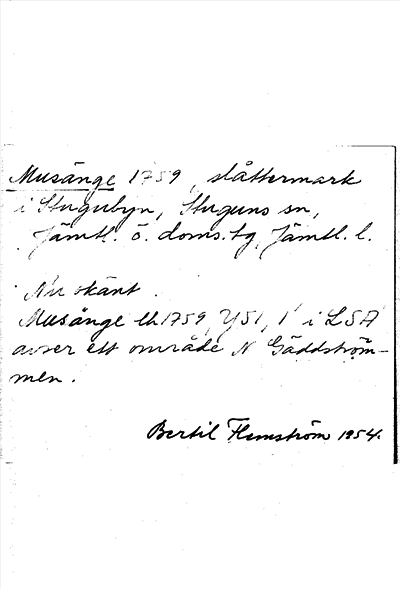 Musänge 1759, slåttermark
i Stugubyn, Stuguns sn,
Jämtl. ö. doms. tg, Jämtl. l.
Nu okänt.
Musänge lh 1759, Y51, 1 i LSA
avser ett område N Gäddström-
men.
Bertil Flemström 1954.